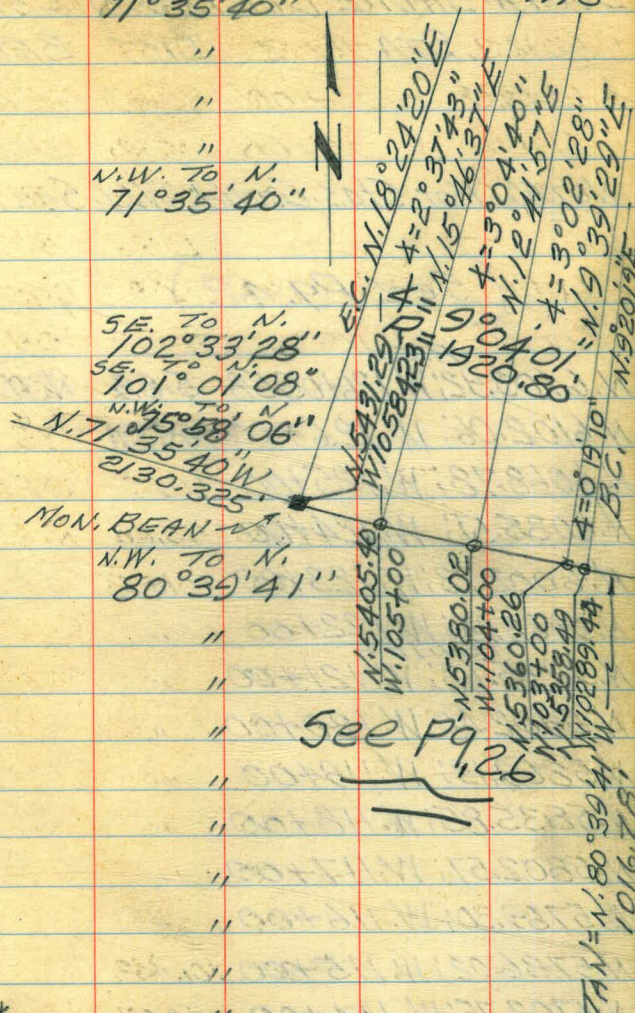 71°35'40"
"
"
"
N.W. TO N.
71°35'40"
SE. TO N.
102°33'28"
SE. TO N.
101°01'08"
N.W. TO N
75°58'06"
N.71°35'40"W
2130.325'
MON. BEAN
N.W. TO N.
80°39'41"
"
"
"
"
"
"
"
"
N
E.C. N.18°24'20"E
∠=2°37'43"
N.15°46'37"E
∠=3°04'40"
N.12°41'57"E
∠=3°02'28"
=N.9°39'29"E
∠=0°19'10"
B.C. N.9°20'19"E
Δ 9°04'01"
R 1920.80'
N.5431.29
W10584.23
N.5405.40
W.105+00
N5380.02
W.104+00
N.5360.26
W.103+00
N.5358.49
W10289.44
See pg. 26
TAN=N.80°39'41"W
1016.78'